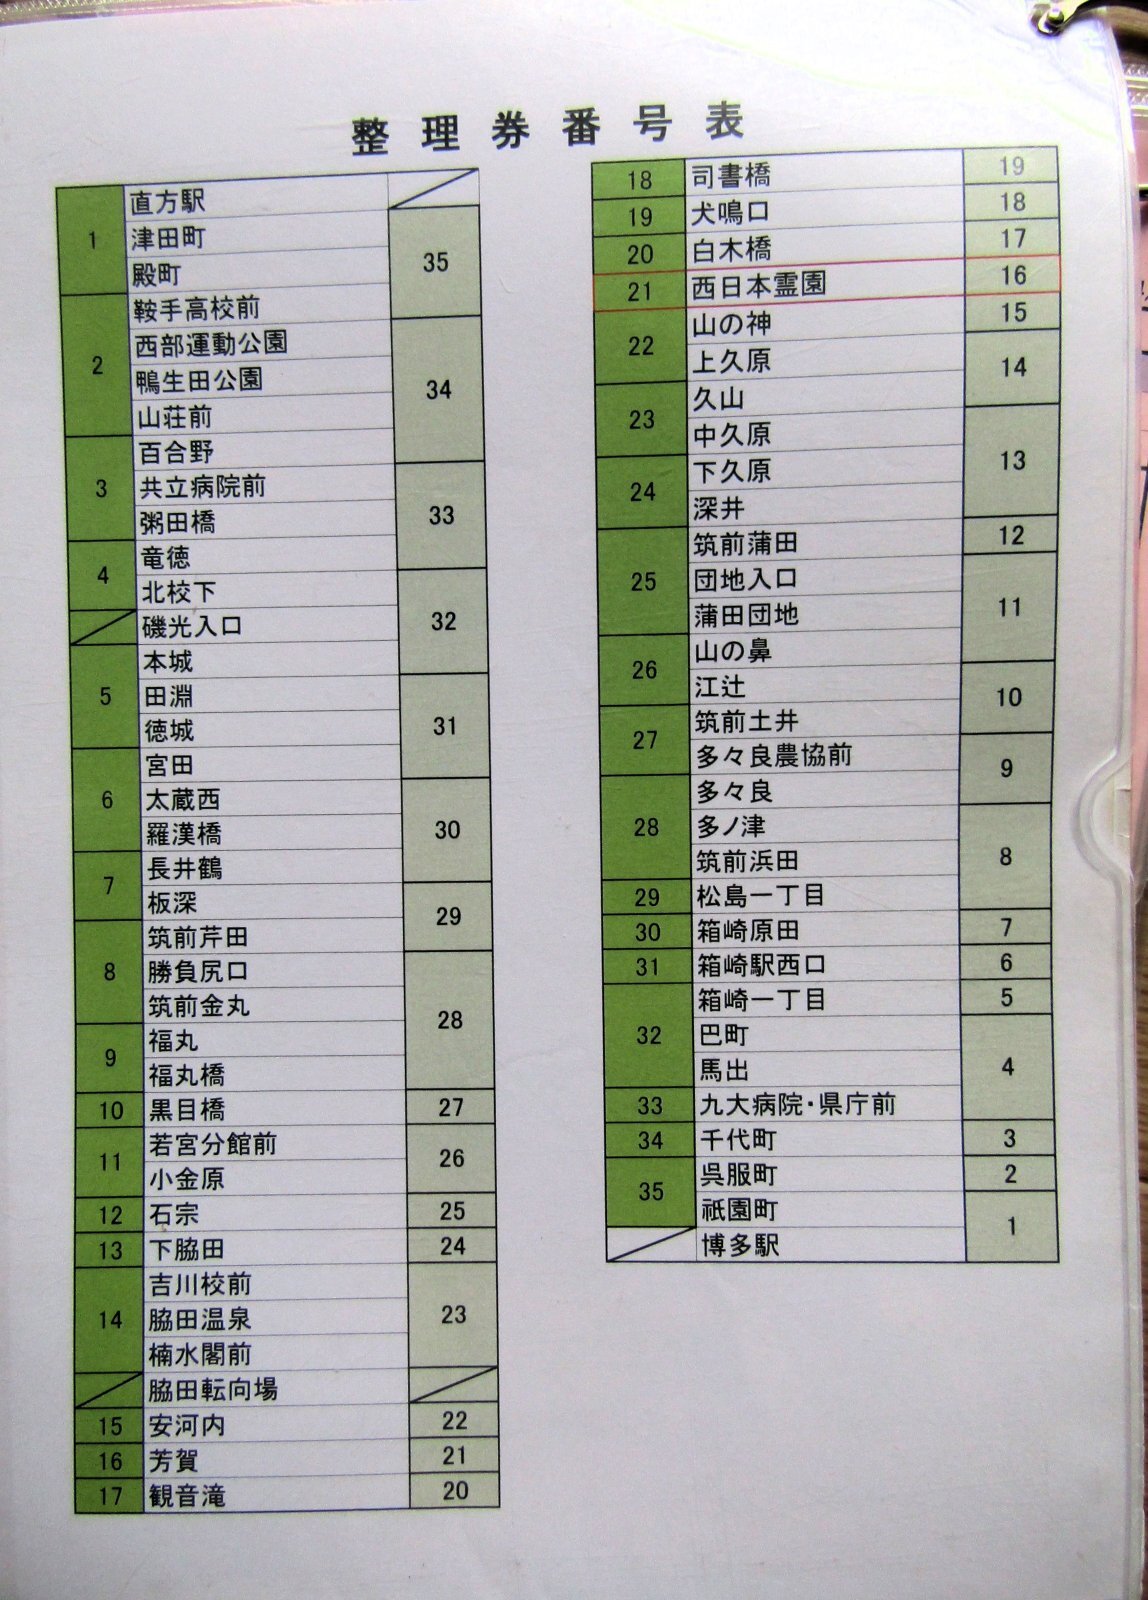 整理券番号表
1 直方駅
津田町 35
殿町
2 鞍手高校前
西部運動公園 34
鴨生田公園
山荘前
3 百合野
共立病院前 33
粥田橋
4 竜徳
北校下 32
磯光入口
5 本城
田淵 31
徳城
6 宮田
太蔵西 30
羅漢橋
7 長井鶴
板深 29
8 筑前芹田
勝負尻口 28
筑前金丸
9 福丸
福丸橋
10 黒目橋 27
11 若宮分館前 26
小金原
12 石宗 25
13 下脇田 24
14 吉川校前 23
脇田温泉
楠水閣前
脇田転向場
15 安河内 22
16 芳賀 21
17 観音滝 20
18 司書橋 19
19 犬鳴口 18
20 白木橋 17
21 西日本霊園 16
22 山の神 15
上久原 14
23 久山
中久原 13
24 下久原
深井
25 筑前蒲田 12
団地入口 11
蒲田団地
26 山の鼻
江辻 10
27 筑前土井
多々良農協前 9
28 多々良
多ノ津 8
筑前浜田
29 松島一丁目
30 箱崎原田 7
31 箱崎駅西口 6
32 箱崎一丁目 5
巴町 4
馬出
33 九大病院・県庁前
34 千代町 3
35 呉服町 2
祇園町 1
博多駅